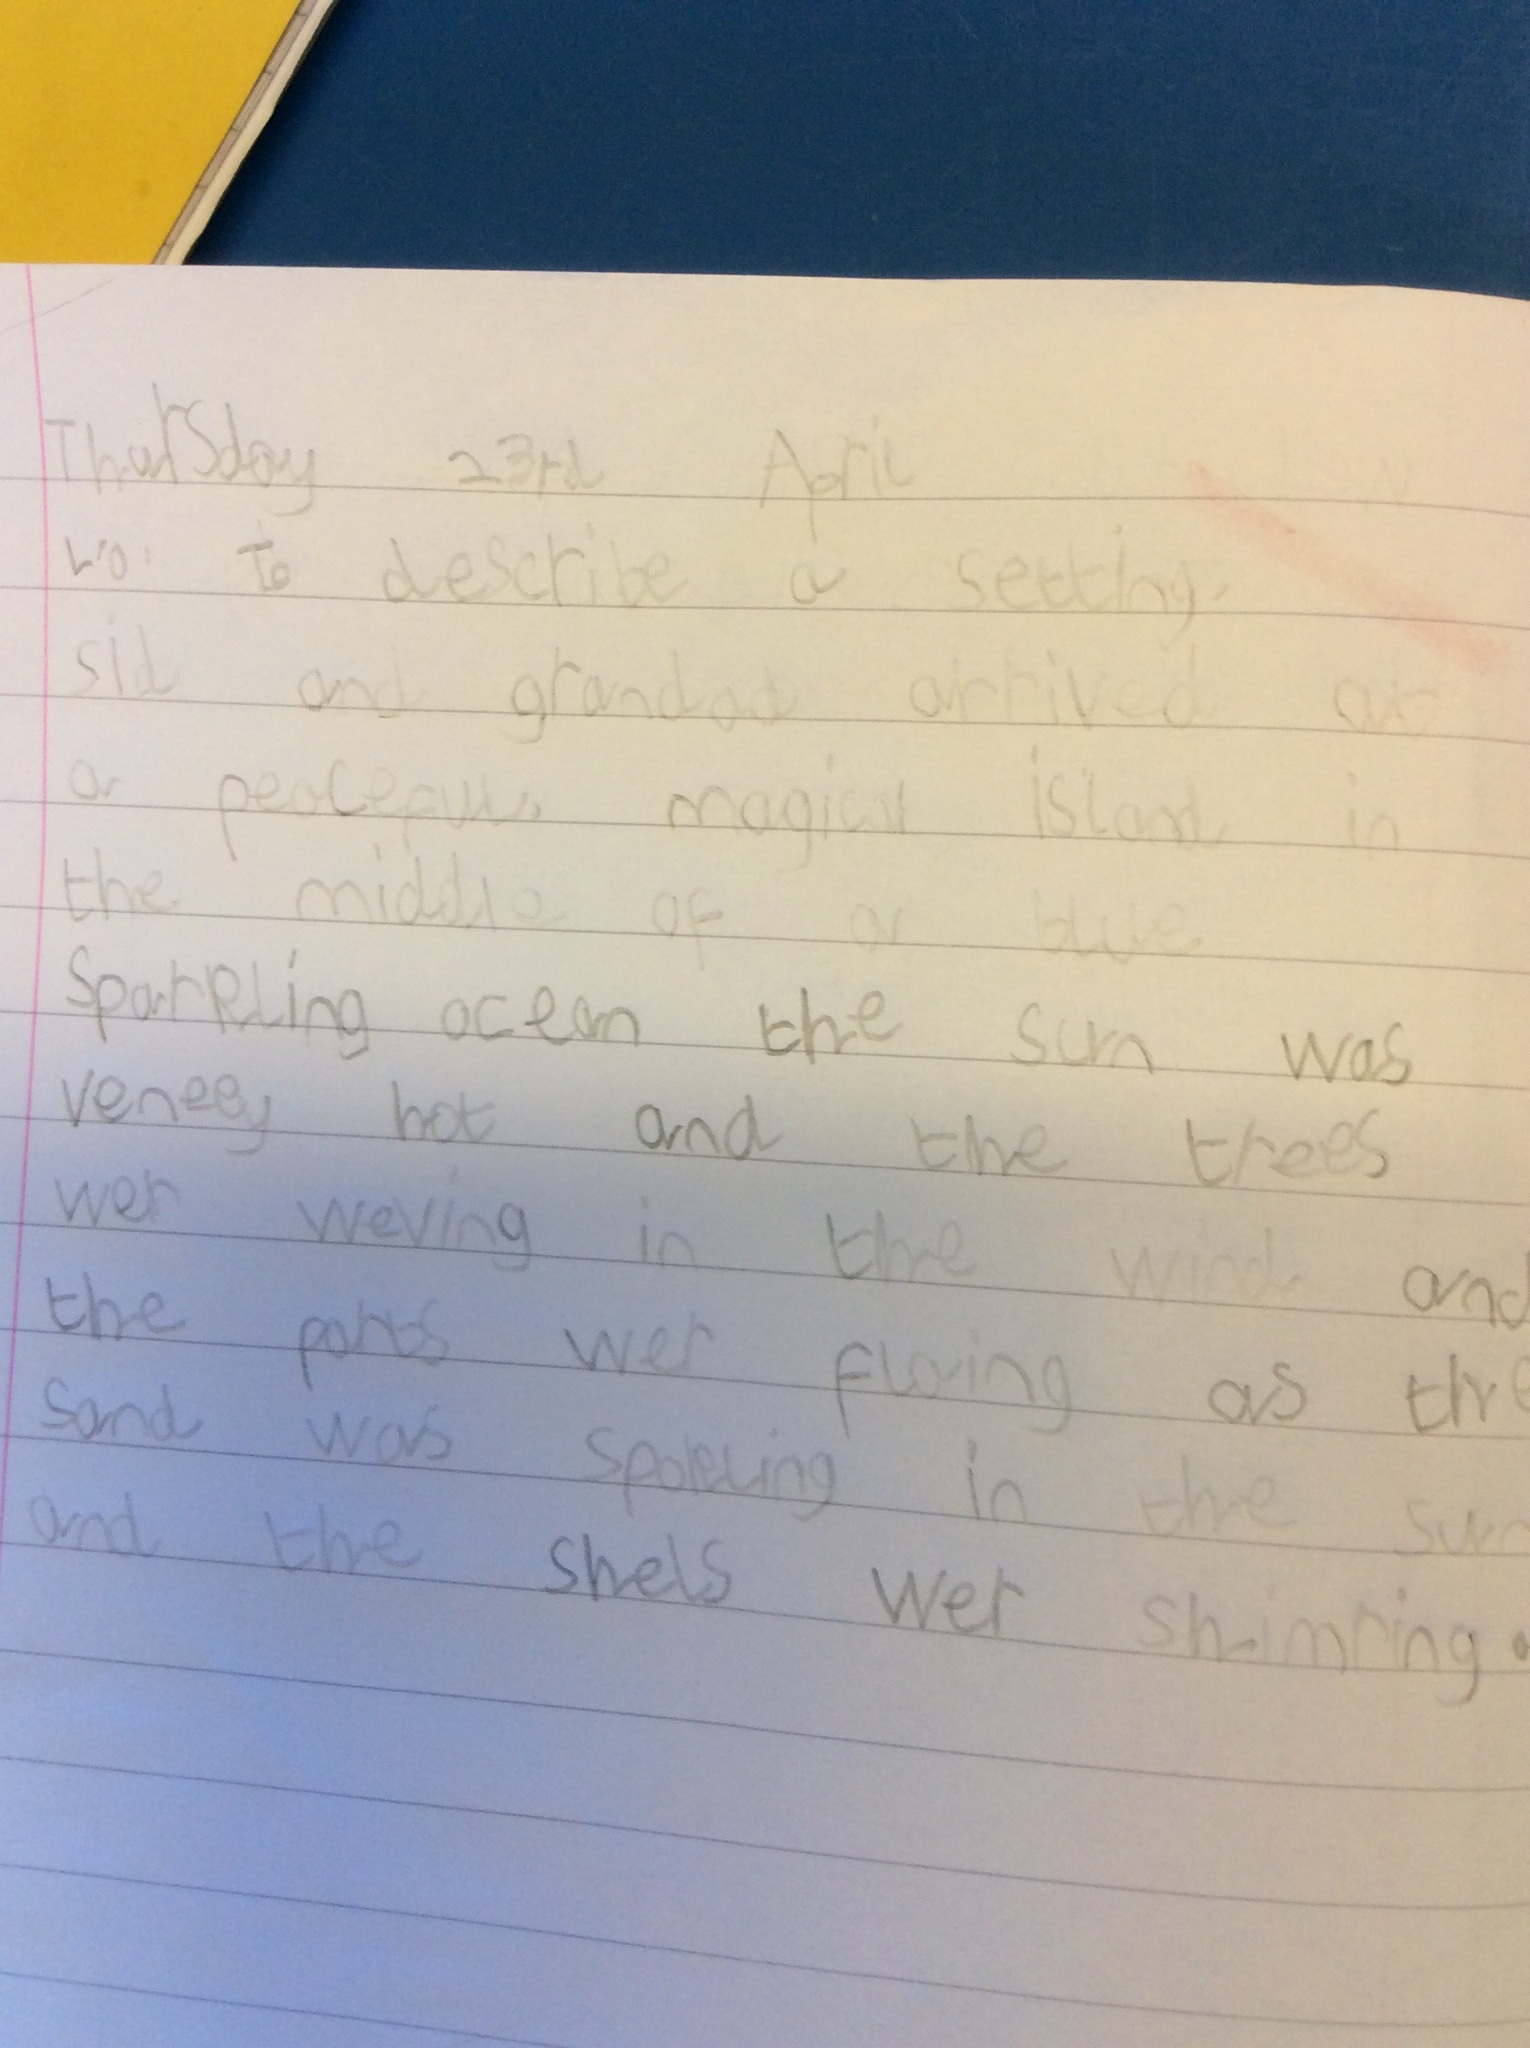 Thursday 23rd April
L.O. To describe a setting.
sid and grandad arrived at
a peaceful, magical island in
the middle of a blue
Sparkling ocean the sun was
vereey hot and the trees
wer weving in the wind and
the parts wer floing as the
Sand was sparkling in the sun
and the shels wer shimring.